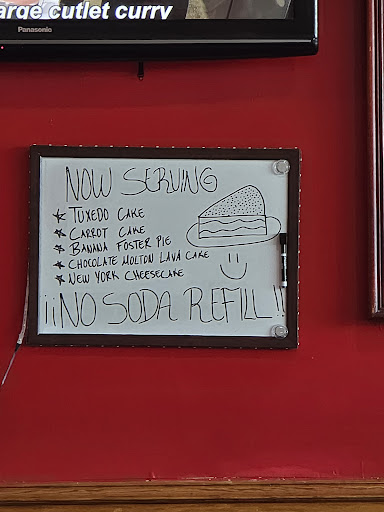 arge cutlet curry
Panasonic
NOW SERVING
★ TUXEDO CAKE
★ CARROT CAKE
★ BANANA FOSTER PIE
★ CHOCOLATE MOLTON LAVA CAKE
★ NEW YORK CHEESECAKE
¡¡NO SODA REFILL!!